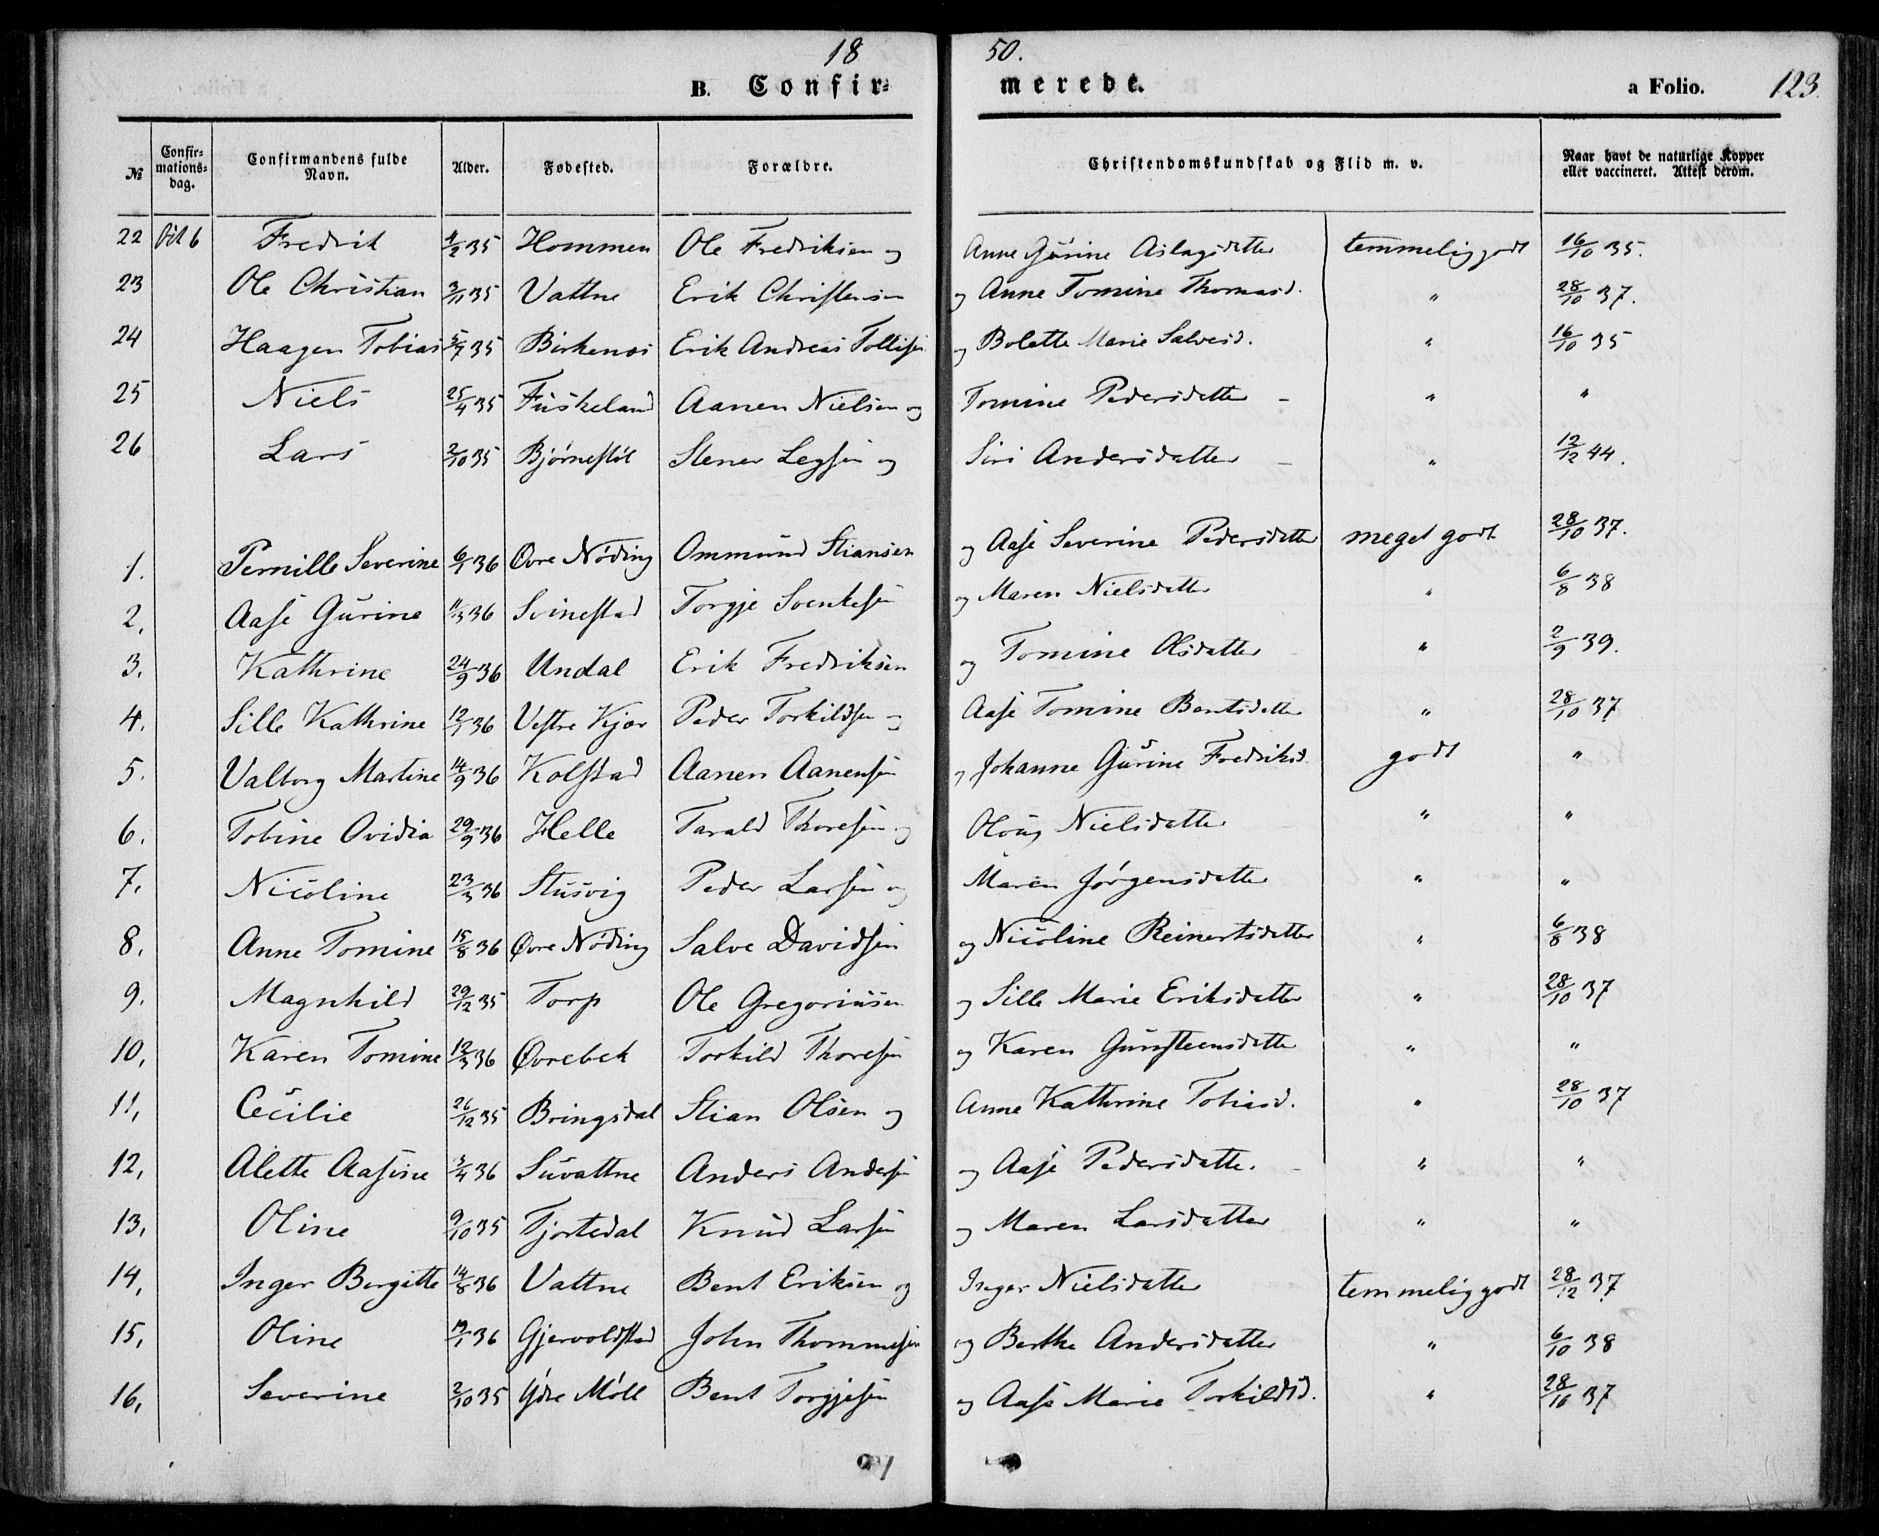 18 50.
B. Confirmerede. a Folio. 123
№ Confirmationsdag. Confirmandens fulde Navn. Alder. Fødested. Forældre. Christendomskundskab og Flid m. v. Naar havt de naturlige Kopper eller vaccineret. Attest derom.
22 Fredrik 4/2 35 Hommen Ole Fredriksen og Anne Gurine Aslagsdatter temmelig godt 16/10 35.
23 Ole Christian 3/11 35 Vattne Erik Christensen og Anne Tomine Thomasd. " 28/10 37.
24 Haagen Tobias 5/7 35 Birkenes Erik Andreas Tollisen og Bolette Marie Salvesd. " 16/10 35
25 Niels 25/4 35 Fuskeland Aanen Nielsen og Tomine Pedersdatter - " "
26 Lars 2/10 35 Bjørnestøl Stener Legsen og Siri Andersdatter - " 12/12 44.
1. Pernille Severine 6/1 36 Øvre Nøding Ommund Stiansen og Aase Severine Pedersdatter meget godt 28/10 37.
2. Aase Gurine 11/3 36 Svinestad Torgje Svenkesen og Maren Nielsdatter " 6/8 38
3. Kathrine 24/9 36 Undal Erik Fredriksen og Tomine Olsdatter " 2/9 39.
4. Sille Kathrine 12/1 36 Vestre Kjær Peder Torkildsen og Aase Tomine Bentsdatter " 28/10 37
5. Valborg Martine 14/9 36 Kolstad Aanen Aanensen og Johanne Gurine Fredriksd. godt "
6. Tobine Ovidia 29/9 36 Helle Tarald Thoresen og Oloug Nielsdatter " "
7. Nicoline 23/3 36 Stusvig Peder Larsen og Maren Jørgensdatter " "
8. Anne Tomine 15/8 36 Øvre Nøding Salve Davidsen og Nicoline Reinertsdatter " 6/8 38
9. Magnhild 29/12 35 Torp Ole Gregoriusen og Sille Marie Eriksdatter " 28/10 37
10, Karen Tomine 12/3 36 Øvrebek Torkild Thoresen og Karen Gunsteensdatter " "
11, Cecilie 26/12 35 Bringsdal Stian Olsen og Anne Kathrine Tobiasd. " 28/10 37
12, Alette Aasine 3/4 36 Suvattne Anders Andersen og Aase Pedersdatter. " "
13, Oline 9/10 35 Tjortedal Knud Larsen og Maren Larsdatter " "
14, Inger Bergitte 14/8 36 Vattne Bent Eriksen og Inger Nielsdatter temmelig godt 28/12 37
15, Oline 36 Gjervoldstad John Thommesen og Berthe Andersdatter " 6/10 38
16, Severine 2/10 35 Ydre Møll Bent Torgjesen og Aase Marie Torkildsd. " 28/10 37